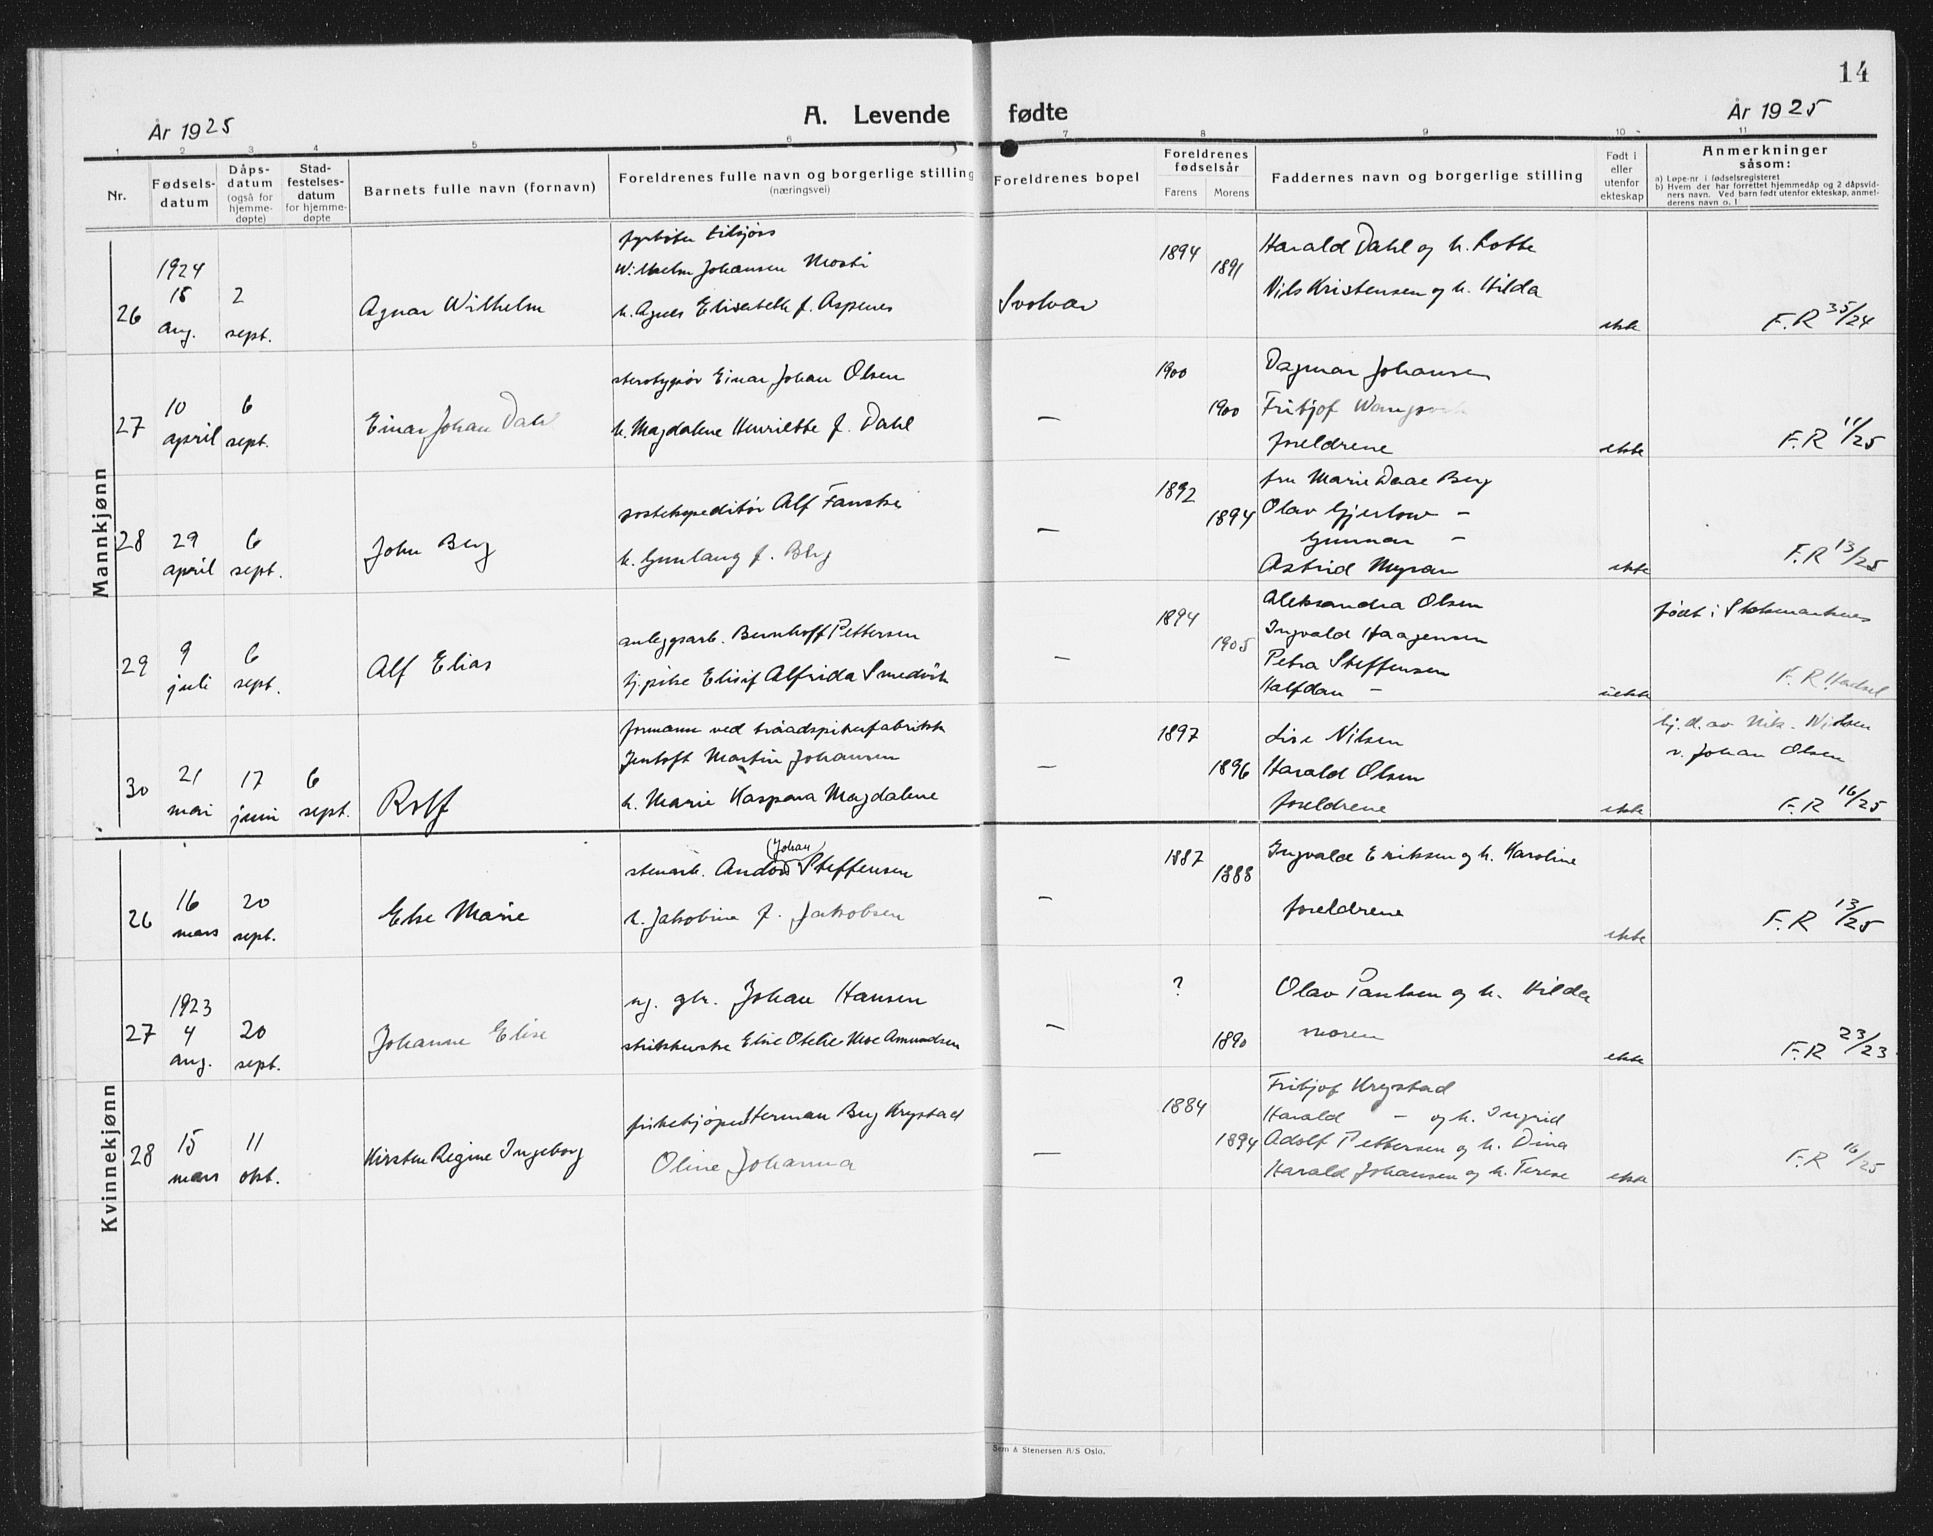 14
År 1925
A. Levende fødte
År 1925
1 2 3 4 5 6 7 8 9 10 11
Nr.
Fødsels-
datum
Dåps-
datum
(også for
hjemme-
døpte)
Stad-
festelses-
datum
for hjemme-
døpte
Barnets fulle navn (fornavn)
Foreldrenes fulle navn og borgerlige stilling
(næringsvei)
Foreldrenes bopel
Foreldrenes
fødselsår
Farens Morens
Faddernes navn og borgerlige stilling
Født i
eller
utenfor
ekteskap
Anmerkninger
såsom:
a) Løpe-nr i fødselsregisteret
b) Hvem der har forrettet hjemmedåp og 2 dåpsvid-
ners navn. Ved barn født utenfor ekteskap, anmel-
derens navn o. l
Mannkjønn
26
1924
15
aug.
2
sept.
Agnar Wilhelm
Wilhelm Johansen
h. Agnes Elisabeth f. Aspenes
Svolvær
1894
1891
Harald Dahl og h. Lotte
Nils Kristensen og h. Hilda
ekte
F.R 35/24
27
10
april
6
sept.
Einar Johan Dahl
Einar Johan Olsen
h. Magdalene Henriette f. Dahl
—
1900
1900
Dagmar Johansen
Fritjof
foreldrene
ekte
F.R 11/25
28
29
april
6
sept.
John Berg
postekspeditør Alf Fauske
h. Gunlaug f. Berg
—
1892
1894
fru Marie Daae Berg
Olav Gjerlow –
Gunnar –
Astrid Myran
ekte
F.R 13/25
29
9
juli
6
sept.
Alf Elias
anleggsarb. Bernhoff Pettersen
tj.pike Elisif Alfrida Smedvik
—
1894
1905
Aleksandra Olsen
Ingvald Haagensen
Petra Steffensen
Halfdan –
uekte
født i Stokmarknes
F.R Hadsel
30
21
mai
17
juni
6
sept.
Rolf
formann ved tråadspikerfabrikk
Jentoft Martin Johansen
h. Marie Kaspara Magdalene
—
1897
1896
Lise Nilsen
Harald Olsen
foreldrene
ekte
hj.d. av Nik. Nilsen
v. Johan Olsen
F.R 16/25
Kvinnekjønn
26
16
mars
20
sept.
Else Marie
(Johan)
stenarb. Andor Steffensen
h. Jakobine f. Jakobsen
—
1887
1888
Ingvald Eriksen og h. Karoline
foreldrene
ekte
F.R 13/25
27
1923
4
aug.
20
sept.
Johanne Elise
ug. gbr. Johan Hansen
Elise Otelie Amundsen
—
?
1890
Olav Paulsen og h. Hilda
moren
ekte
F.R 23/23
28
15
mars
11
okt.
Kirsten Regine Ingeborg
fiskekjøper Herman Berg Krystad
Oline Johanna
—
1884
1894
Fritjof Krystad
Harald – og h. Ingrid
Adolf Pettersen og h. Dina
Harald Johansen og h. Terese
ekte
F.R 16/25
Sem & Stenersen A/S Oslo.